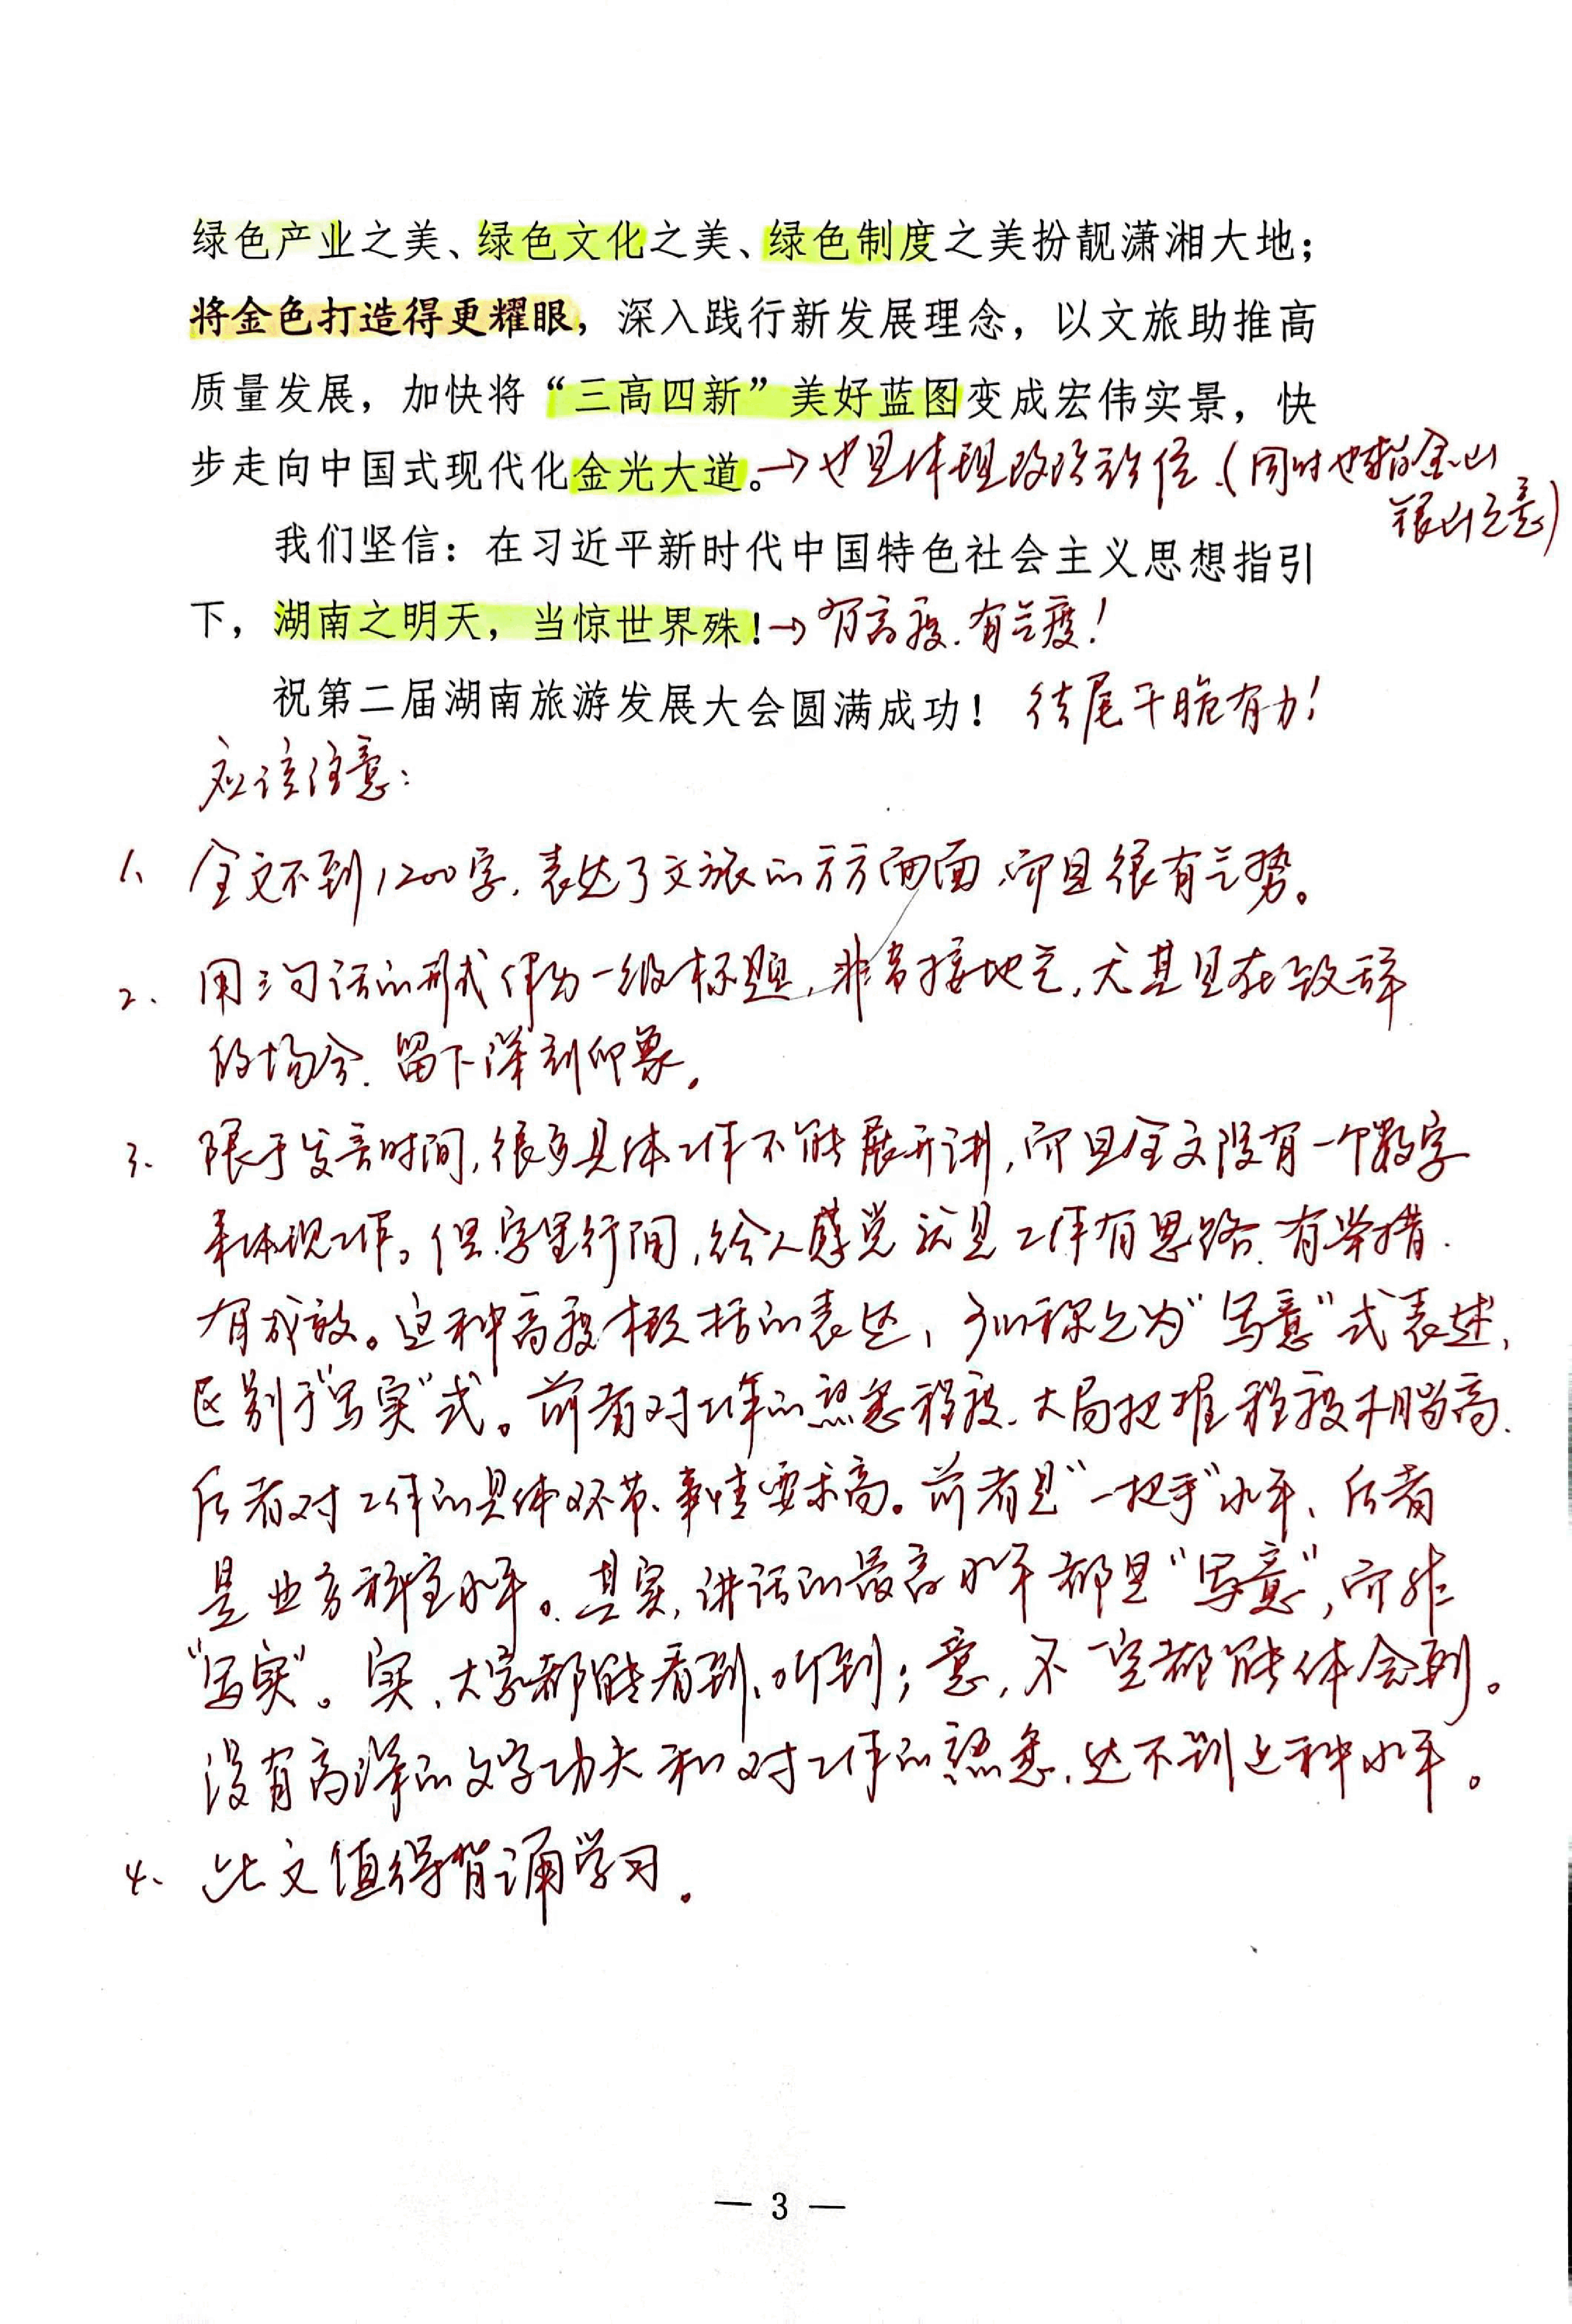 绿色产业之美、绿色文化之美、绿色制度之美扮靓潇湘大地；
将金色打造得更耀眼，深入践行新发展理念，以文旅助推高
质量发展，加快将“三高四新”美好蓝图变成宏伟实景，快
步走向中国式现代化金光大道。→也是体现政治站位.(同时也指金山
银山之意)
我们坚信：在习近平新时代中国特色社会主义思想指引
下，湖南之明天，当惊世界殊！→有高度.有气度！
祝第二届湖南旅游发展大会圆满成功！ 结尾干脆有力！
应该注意：
1、全文不到1200字，表达了文旅的方方面面，而且很有气势。
2、用三句话的形式作为一级标题，非常接地气，尤其是在致辞
的场合.留下深刻印象。
3、限于发言时间，很多具体工作不能展开讲，而且全文没有一个数字
来体现工作。但字里行间，给人感觉就是工作有思路.有举措.
有成效。这种高度概括的表达，可以称之为“写意”式表述，
区别于“写实”式。前者对工作的熟悉程度.大局把握程度相当高.
后者对工作的具体环节、事情要求高。前者是“一把手”水平、后者
是业务科室水平。其实，讲话的最高水平都是“写意”，而非
“写实”。实，大家都能看到、听到；意，不一定都能体会到。
没有高深的文字功夫和对工作的熟悉.达不到这种水平。
4、此文值得背诵学习.
— 3 —